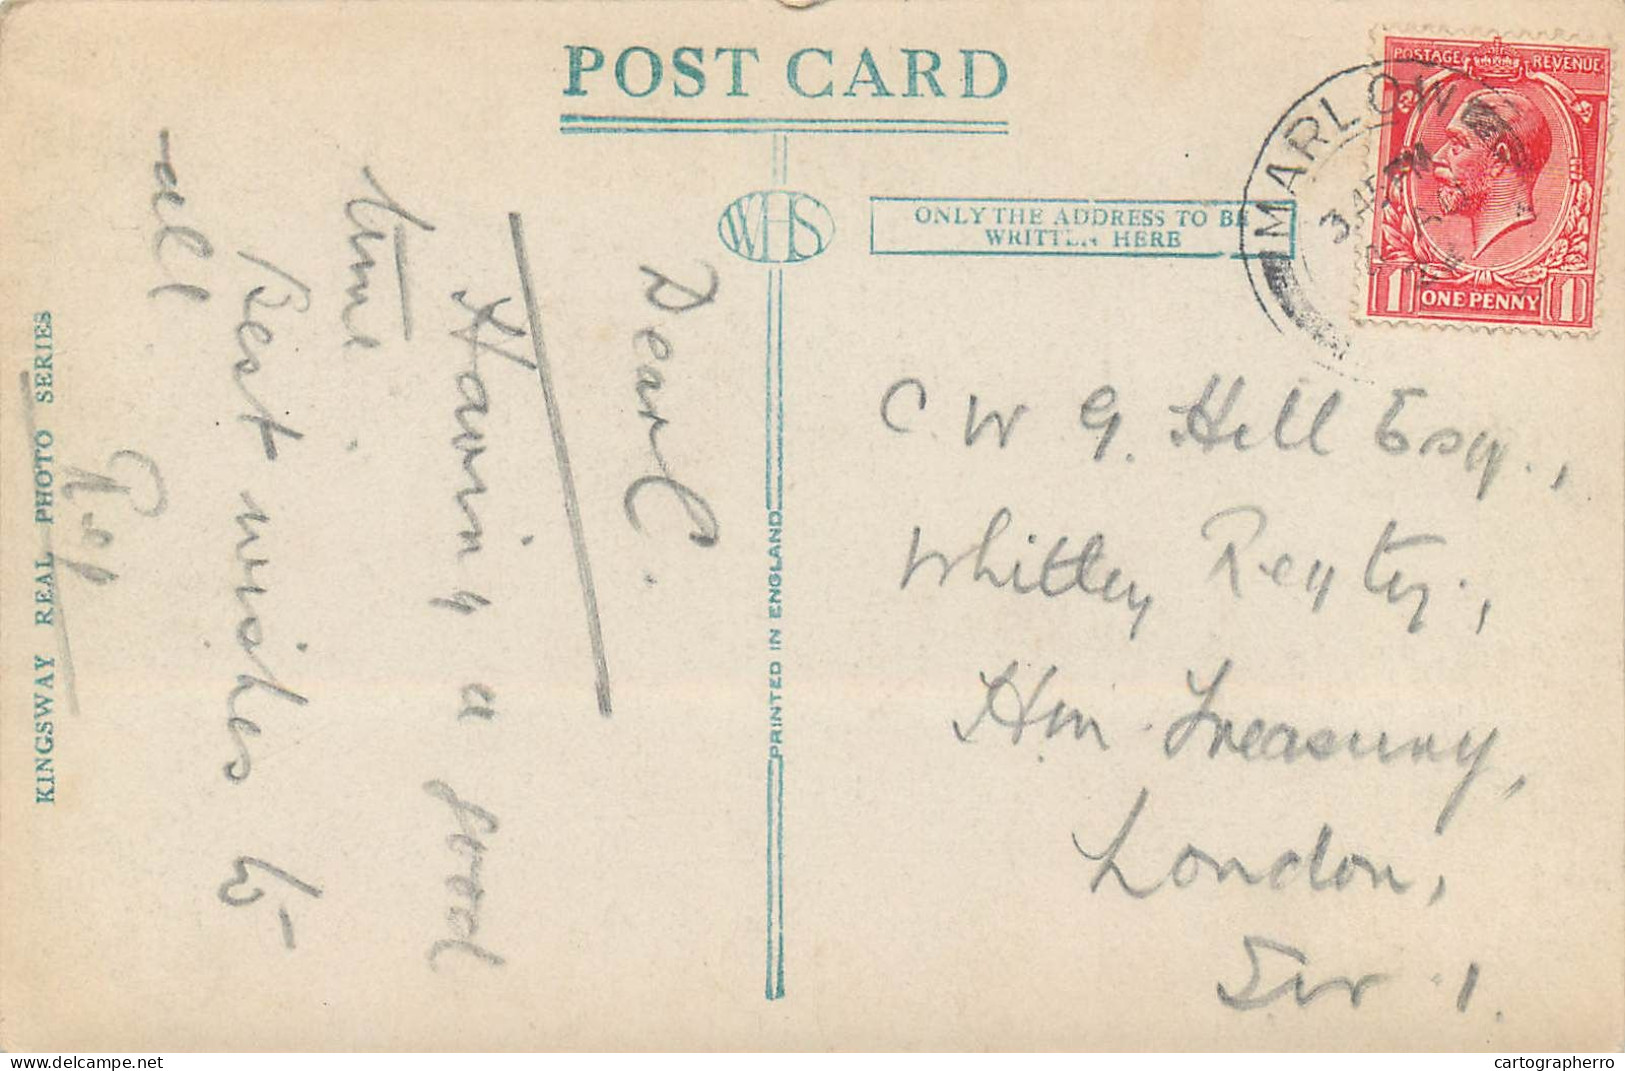 POST CARD
WHS
ONLY THE ADDRESS TO BE
WRITTEN HERE
MARLOW
3.45 PM
POSTAGE REVENUE
1 ONE PENNY 1
Dear C.
Having a good
time.
Best wishes to
all
C. W. G. Hill Esq.,
Whitley
Treasury,
London,
KINGSWAY REAL PHOTO SERIES
PRINTED IN ENGLAND
cartographerro